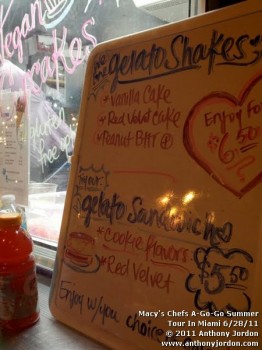 Vegan
Shakes
gelato Shakes
Vanilla Cake
Red Velvet cake
Peanut Butt
Enjoy For
6.50
gelato Sandwich
Cookie flavors
Red Velvet
$5.50
Enjoy w/your choice
Macy's Chefs A-Go-Go Summer
Tour In Miami 6/28/11
© 2011 Anthony Jordon
www.anthonyjordon.com